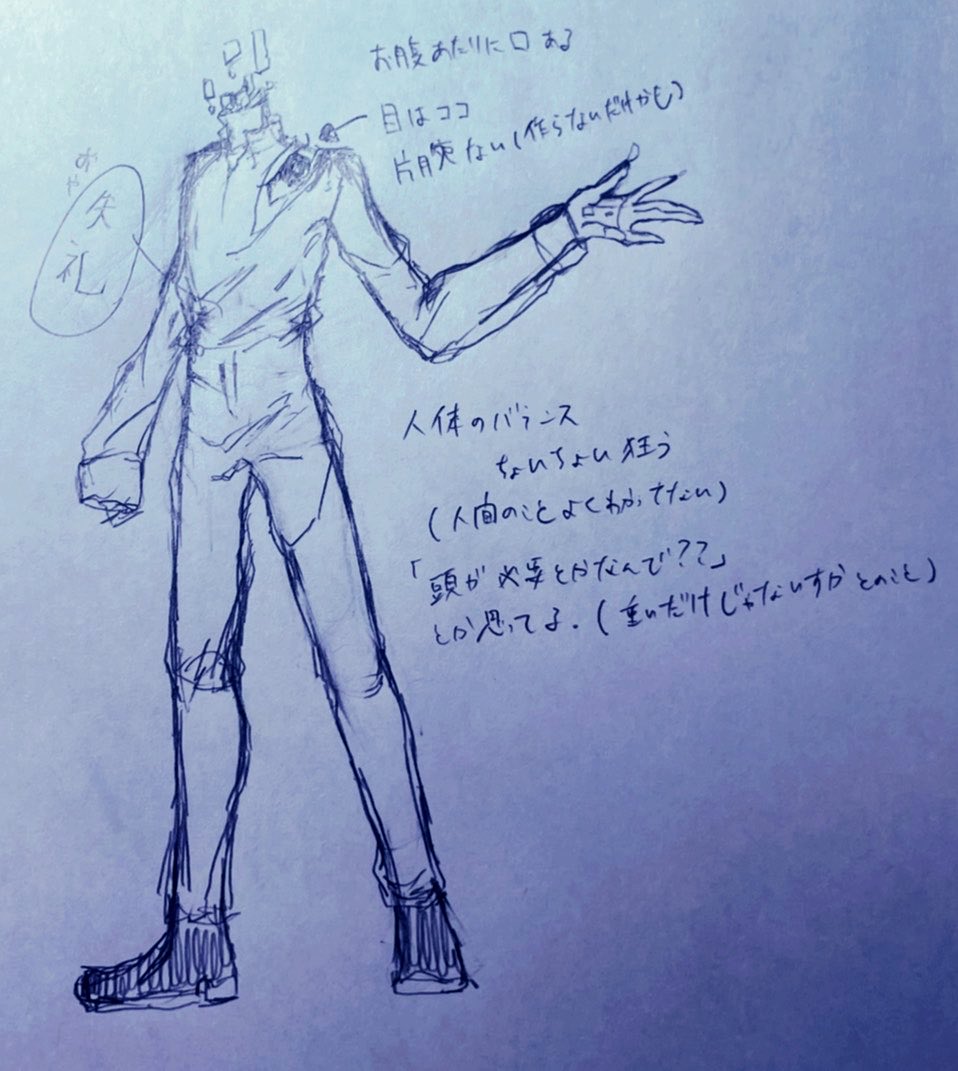 お腹あたりに口ある
目はココ
片腕ない(作らないだけかも)
おや
失礼
人体のバランス
ちょいちょい狂う
(人間のことよくわかってない)
「頭が必要とかなんで??」
とか思ってる.(重いだけじゃないすかとのこと)